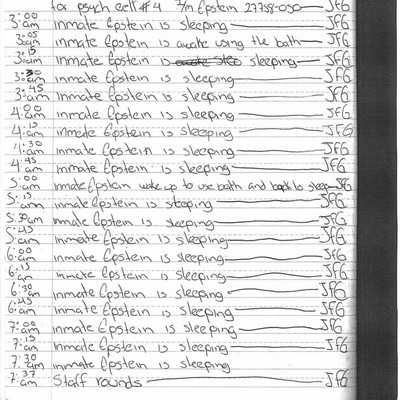 for psych cell #4 I/m Epstein 27758-050 JFG
3:00 am inmate Epstein is sleeping JFG
3:05 am inmate Epstein is awake using the bath JFG
3:15 am inmate Epstein is sleeping JFG
3:30 am inmate Epstein is sleeping JFG
3:45 am inmate Epstein is sleeping JFG
4:00 am inmate Epstein is sleeping JFG
4:15 am inmate Epstein is sleeping JFG
4:30 am inmate Epstein is sleeping JFG
4:45 am inmate Epstein is sleeping JFG
5:00 am inmate Epstein wake up to use bath and back to sleep JFG
5:15 am inmate Epstein is sleeping JFG
5:30 am inmate Epstein is sleeping JFG
5:45 am inmate Epstein is sleeping JFG
6:00 am inmate Epstein is sleeping JFG
6:15 am inmate Epstein is sleeping JFG
6:30 am inmate Epstein is sleeping JFG
6:45 am inmate Epstein is sleeping JFG
7:00 am inmate Epstein is sleeping JFG
7:15 am inmate Epstein is sleeping JFG
7:30 am inmate Epstein is sleeping
7:37 am Staff rounds JFG